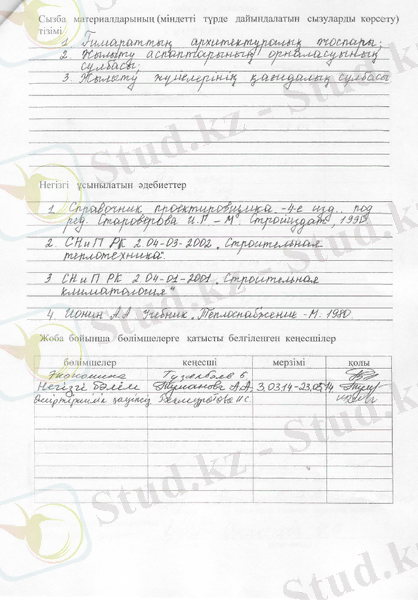 Сызба материалдарының (міндетті түрде дайындалатын сызуларды көрсету)
тізімі
1. Ғимараттың архитектуралық жоспары;
2. Жылыту аспаптарының орналасуының
сұлбасы;
3. Жылыту жүйелерінің қағидалық сұлбасы
Негізгі ұсынылатын әдебиеттер
1. Справочник проектировщика -4-е изд., под
ред. Староверова И.Г - М. Стройиздат, 1990
2. СНиП РК 2.04-03-2002. Строительная
теплотехника"
3 СНиП РК 2.04-01-2001. "Строительная
климатология"
4. Ионин А.А Учебник. Теплоснабжение - М. 1980.
Жоба бойынша бөлімшелерге қатысты белгіленген кеңесшілер
бөлімшелер кеңесші мерзімі қолы
Экономика
Негізгі бөлім Туманова А.А. 3.03.14-23.05.14
Stud.kz - Stud.kz